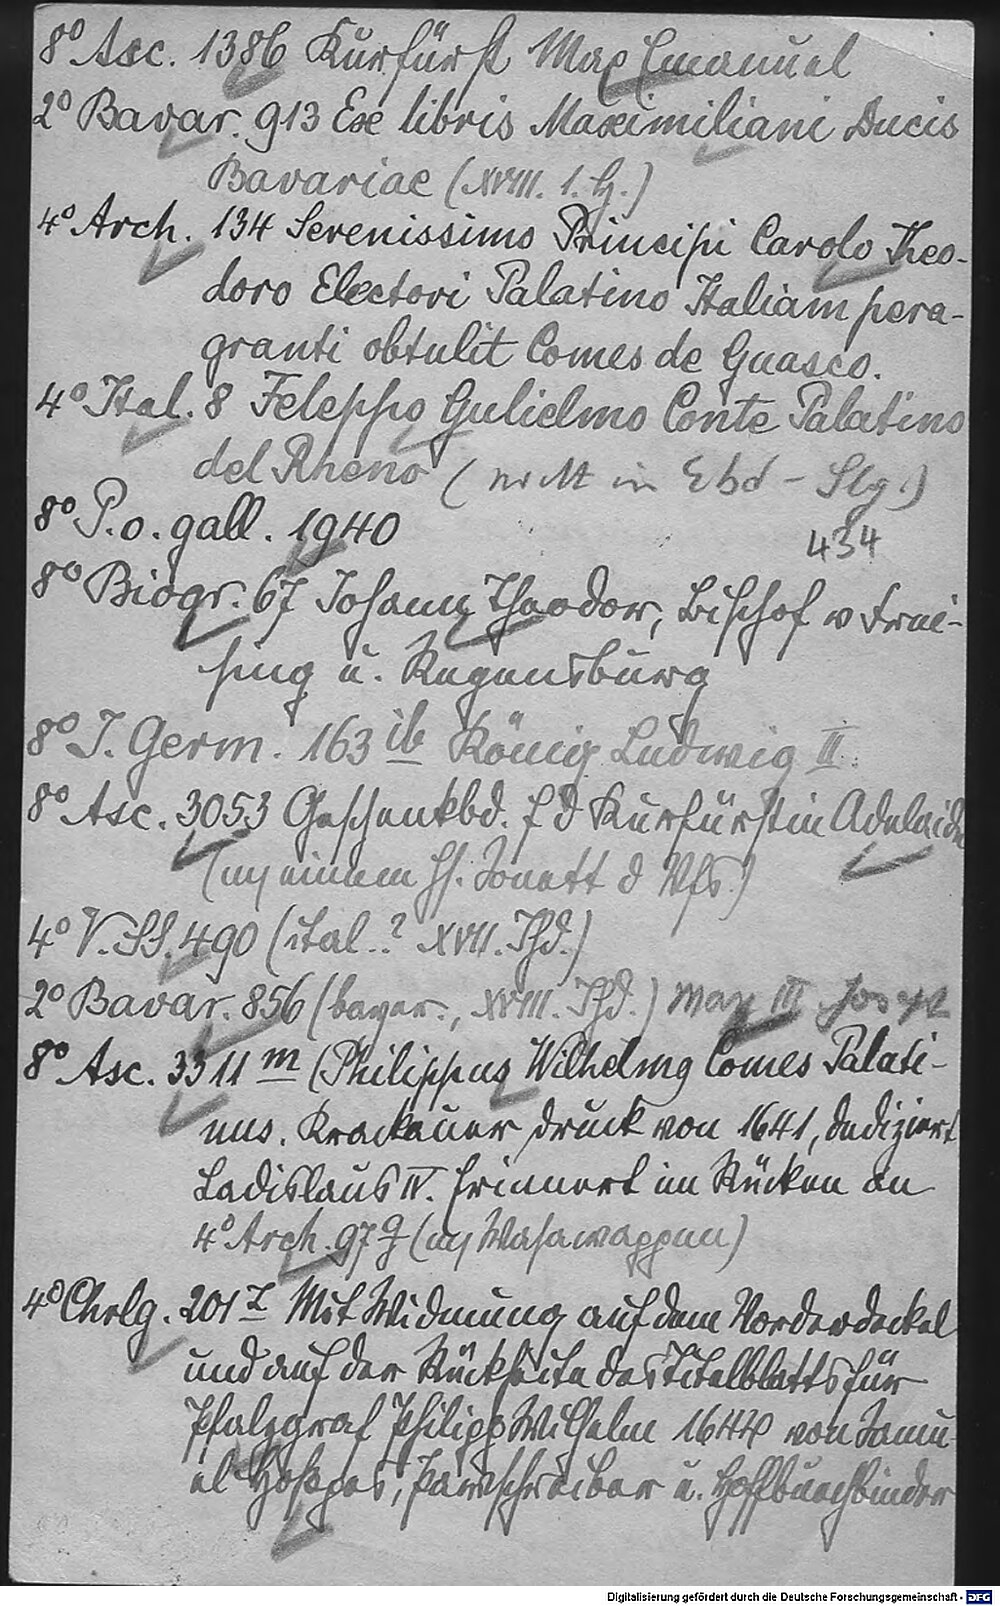 8° Asc. 1386 Kurfürst Max Emanuel
2° Bavar. 913 Exe libris Maximiliani Ducis
Bavariae (XVIII. 1. H.)
4° Arch. 134 Serenissimo Principi Carolo Theo-
doro Electori Palatino Italiam pera-
granti obtulit Comes de Guasco.
4° Ital. 8 Feleppo Gulielmo Conte Palatino
del Rheno (nicht in Ebd-Slg.)
8° P.o. gall. 1940
434
8° Biogr. 67 Johann Theodor, Bischof v Frei-
sing u. Regensburg
8° J. Germ. 163 ib König Ludwig II.
8° Asc. 3053 Geschenkbd. f d Kurfürstin Adelaide
(m einem hs. Sonett d Vfs.)
4° V. SS. 490 (ital..? XVII. Jhd.)
2° Bavar. 856 (bayer., XVIII. Jhd.) Max III Joseph
8° Asc. 3311 m (Philippus Wilhelmg Comes Palati-
nus. Krackauer druck von 1641, dediziert
Ladislaus IV. Erinnert im Rücken an
4° Arch. 97 g (m Wasawappen)
4° Chrlg. 201 z Mit Widmung auf dem Vorderdeckel
und auf der Rückseite des Titelblatts für
Pfalzgraf Philipp Wilhelm 1644 von Samu
el u. Hoffbuechbinder